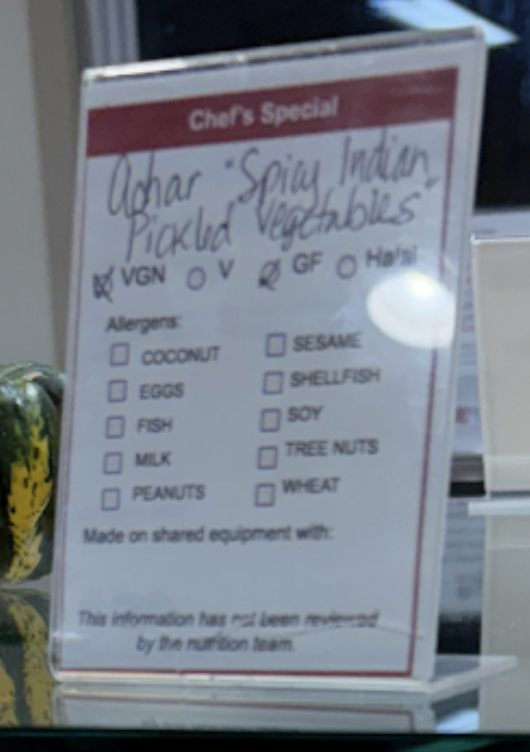 Chef's Special
Achar "Spicy Indian
Pickled Vegetables"
VGN V GF Halal
Allergens:
COCONUT SESAME
EGGS SHELLFISH
FISH SOY
MILK TREE NUTS
PEANUTS WHEAT
Made on shared equipment with:
This information has not been reviewed
by the nutrition team.